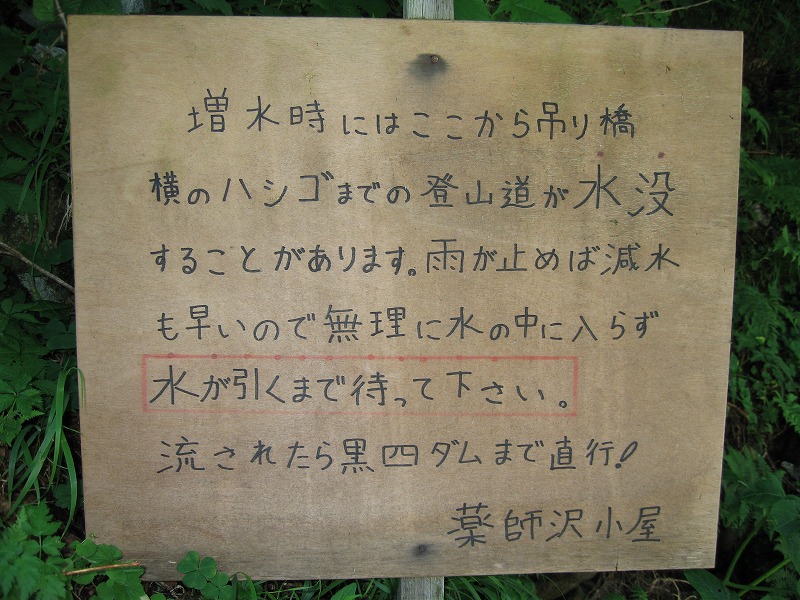 増水時にはここから吊り橋
横のハシゴまでの登山道が水没
することがあります。雨が止めば減水
も早いので無理に水の中に入らず
水が引くまで待って下さい。
流されたら黒四ダムまで直行!
薬師沢小屋